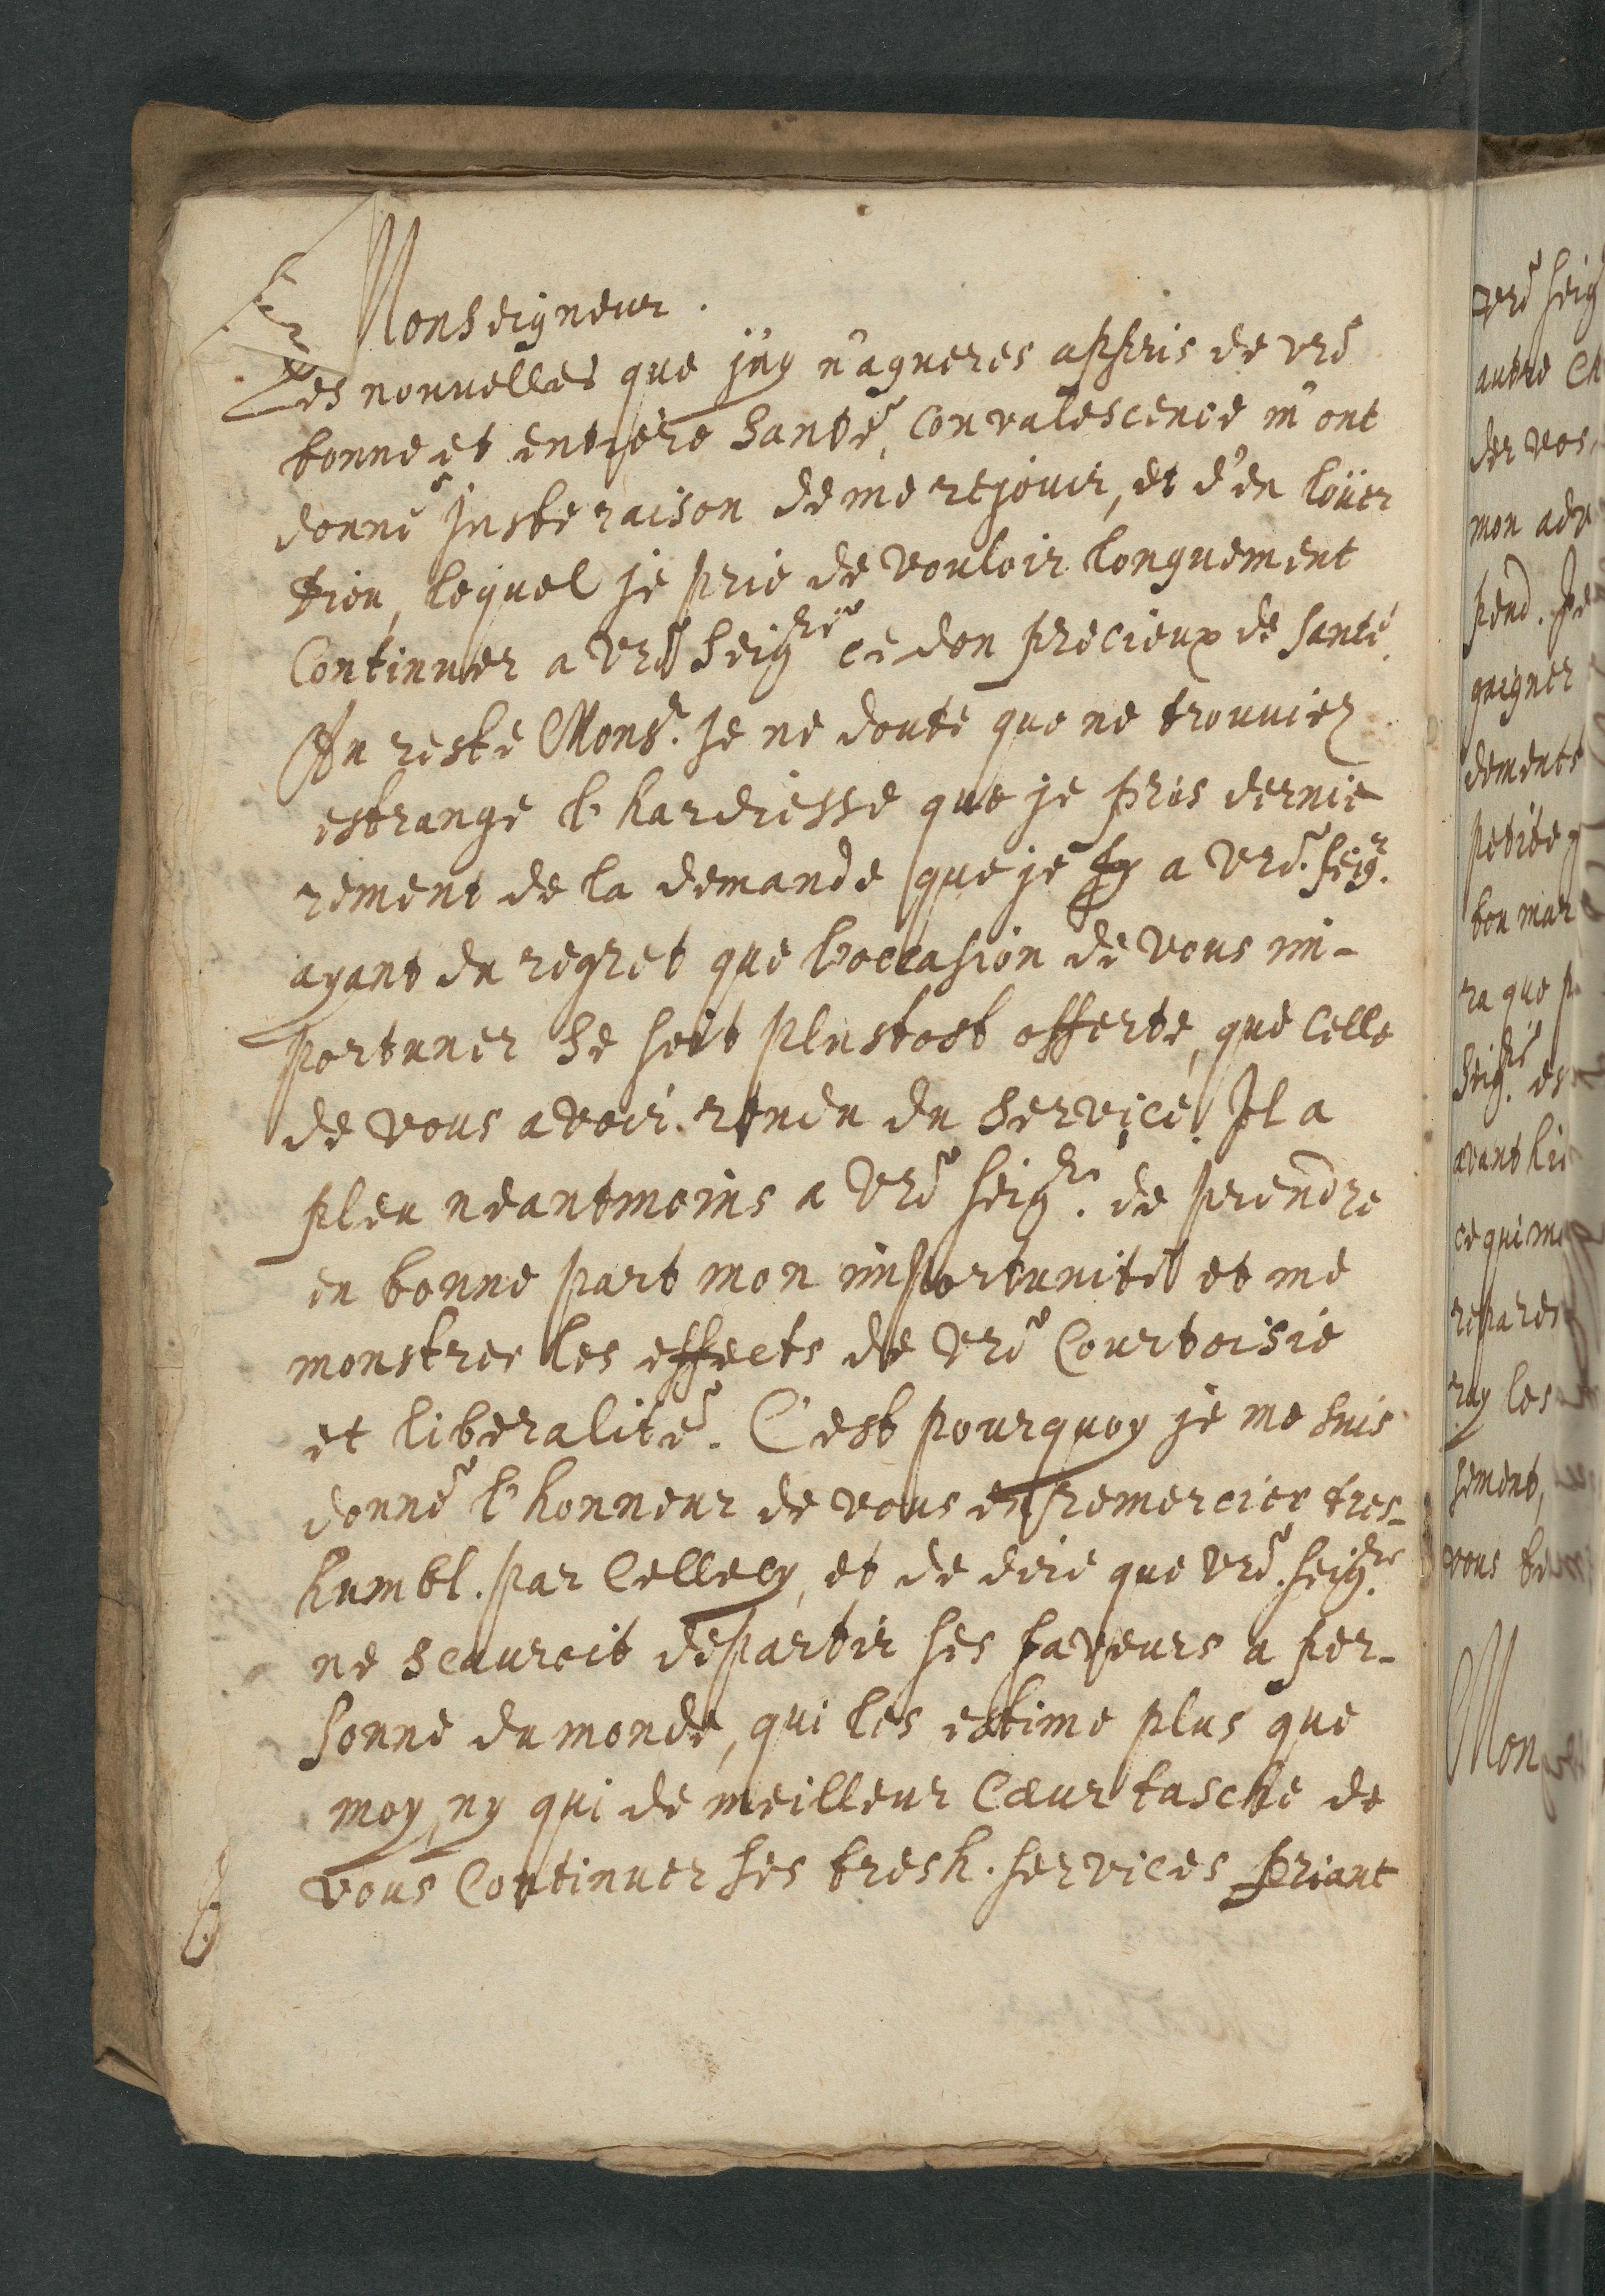 Monseigneur.
Les nouvelles que j'ay n'agueres appris de vrẽ
bonne et entiere Santé, Convalescence m'ont
donné juste raison de me rejouir, et d'en löuer
Dieu, lequel je prie de vouloir longuement
Continuer a Vrẽ Seig.rie ce don precieux de Santé.
Au reste Mons.r je ne doute que ne trouviez
estrange l'hardiesse que je pris dernie
rement de la demande que je fy a Vrẽ. seig.r
ayant du regret que l'occasion de vous im-
portuner se soit plustost offerte, que Celle
de vous avoir rendu du Service. Il a
pleu neantmoins a Vrẽ seig.r de prendre
en bonne part mon importunité et me
monstrer les effects de Vrẽ Courtoisie
et liberalité. C'est pourquoy je me suis
donné l'honneur de vous en remercier tres-
humbl. par Cellecy, et de dire que Vrẽ. seig.rie
ne scauroit departir ses faveurs a per-
sonne du monde, qui les estime plus que
moy, ny qui de meilleur Cœur tasche de
vous Continuer ses tresh. services priant
vrẽ seig
autre Ch
der vos
mon adv
pend. Je
gaigner
dements
petite
bon mar
ra que p
Seig.rie es
avant hie
ce qui me
repares
ray les
sement,
vous be
Mon